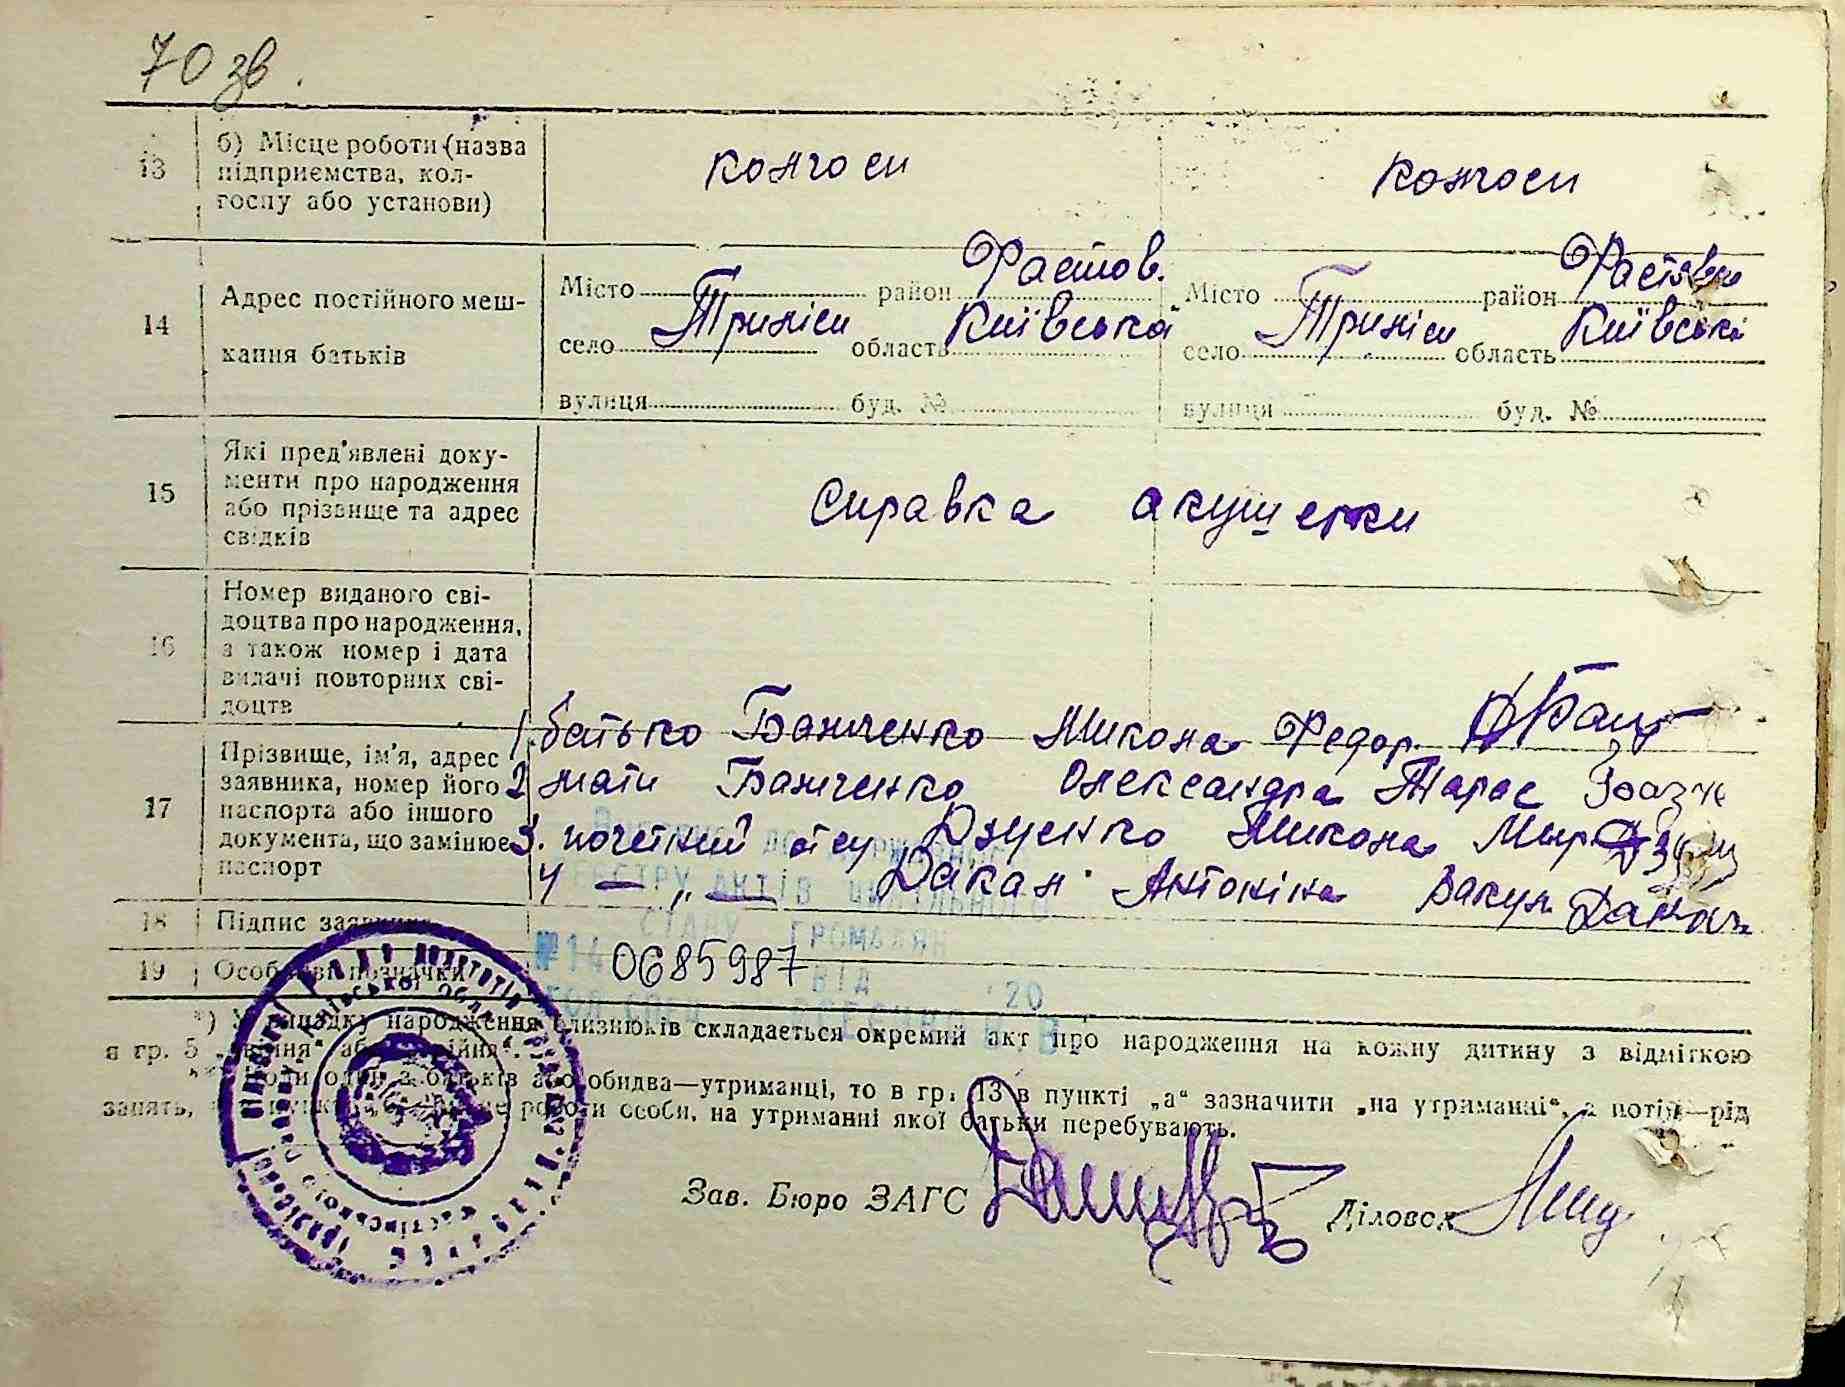 70 зв.
13 б) Місце роботи (назва підприємства, колгоспу або установи) колгосп колгосп
14 Адрес постійного мешкання батьків
Місто район Фастов. Місто район Фастівськ
село Трилісп область Київська село Трилісп область Київська
вулиця буд. № вулиця буд. №
15 Які пред'явлені документи про народження або прізвище та адрес свідків справка акушерки
16 Номер виданого свідоцтва про народження, а також номер і дата видачі повторних свідоцтв
17 Прізвище, ім'я, адрес заявника, номер його паспорта або іншого документа, що замінює паспорт
1. батько Банченко Микола Федор.
2 мати Банченко Олександра Тарас
3. почетний Дзиценко Микола Мир
4 — „ — Дакал Антоніна Вакул.
18 Підпис заявника
19 Особливі позначки 0685987
РЕЄСТРУ АКТІВ ЦИВІЛЬНОГО
СТАНУ ГРОМАДЯН
№14 ВІД 20
*) У випадку народження близнюків складається окремий акт про народження на кожну дитину з відміткою
в гр. 5 „двійня“ або „трійня“.
**) Коли один з батьків або обидва—утриманці, то в гр. 13 в пункті „а“ зазначити „на утриманні“, а потім—рід
занять, роботи особи, на утриманні якої батьки перебувають.
Зав. Бюро ЗАГС Діловод